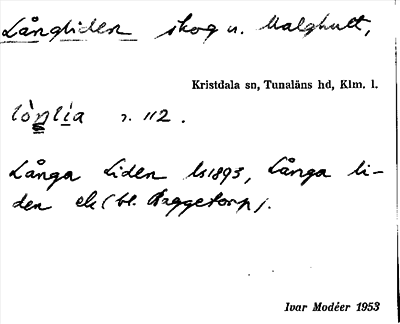 Långliden skog u. Malghult,
Kristdala sn, Tunaläns hd, Klm. l.
lòŋlía r. 112.
Långa Liden ls 1893, Långa li-
den ek (bl. Baggetorp).
Ivar Modéer 1953